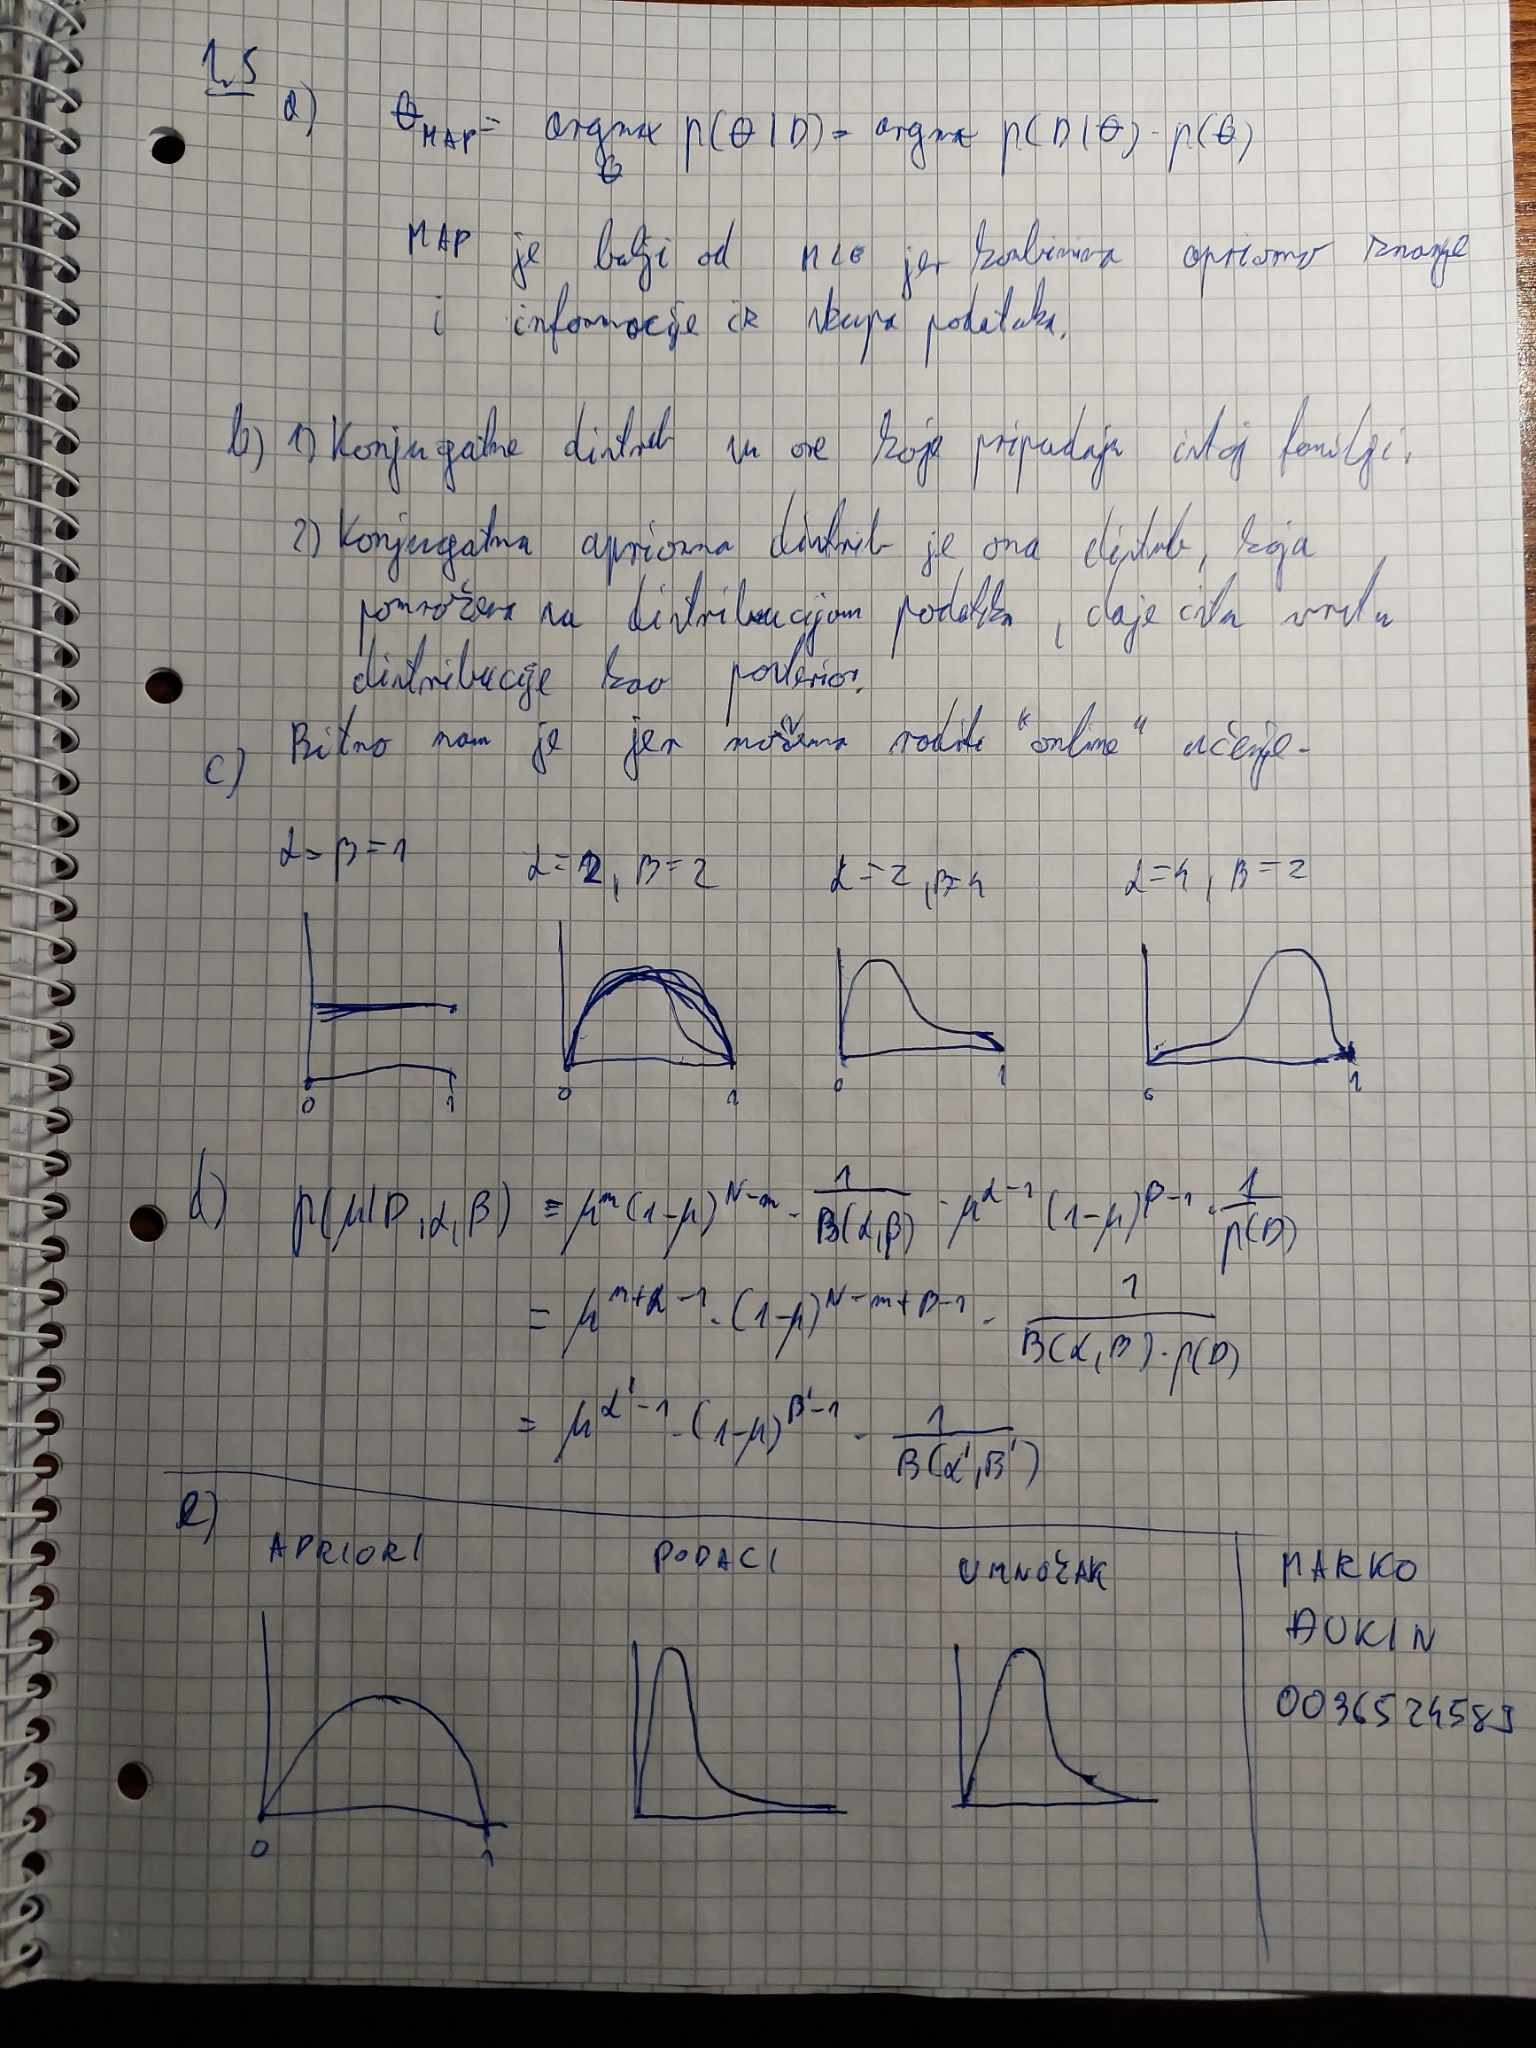 1.5
a) θ_MAP = argmax_θ p(θ|D) = argmax p(D|θ) · p(θ)
MAP je bolji od MLE jer kombinira apriorno znanje
i informacije iz skupa podataka.
b) 1) Konjugatne distrib su one koje pripadaju istoj familji.
2) Konjugatna apriorna distrib je ona distrib, koja
pomnožena sa distribucijom podatka, daje istu vrstu
distribucije kao posterior.
Bitno nam je jer možemo raditi "online" učenje.
c)
α = β = 1 α = 2, β = 2 α = 2, β = 4 α = 4, β = 2
0 1 0 1 0 1 0 1
d) p(μ|D,α,β) = μ^m (1-μ)^(N-m) · 1/B(α,β) · μ^(α-1) (1-μ)^(β-1) · 1/p(D)
= μ^(m+α-1) · (1-μ)^(N-m+β-1) · 1/(B(α,β) · p(D))
= μ^(α'-1) · (1-μ)^(β'-1) · 1/B(α',β')
e)
APRIORI PODACI UMNOŽAK
0 1
MARKO
ĐUKIN
0036524589